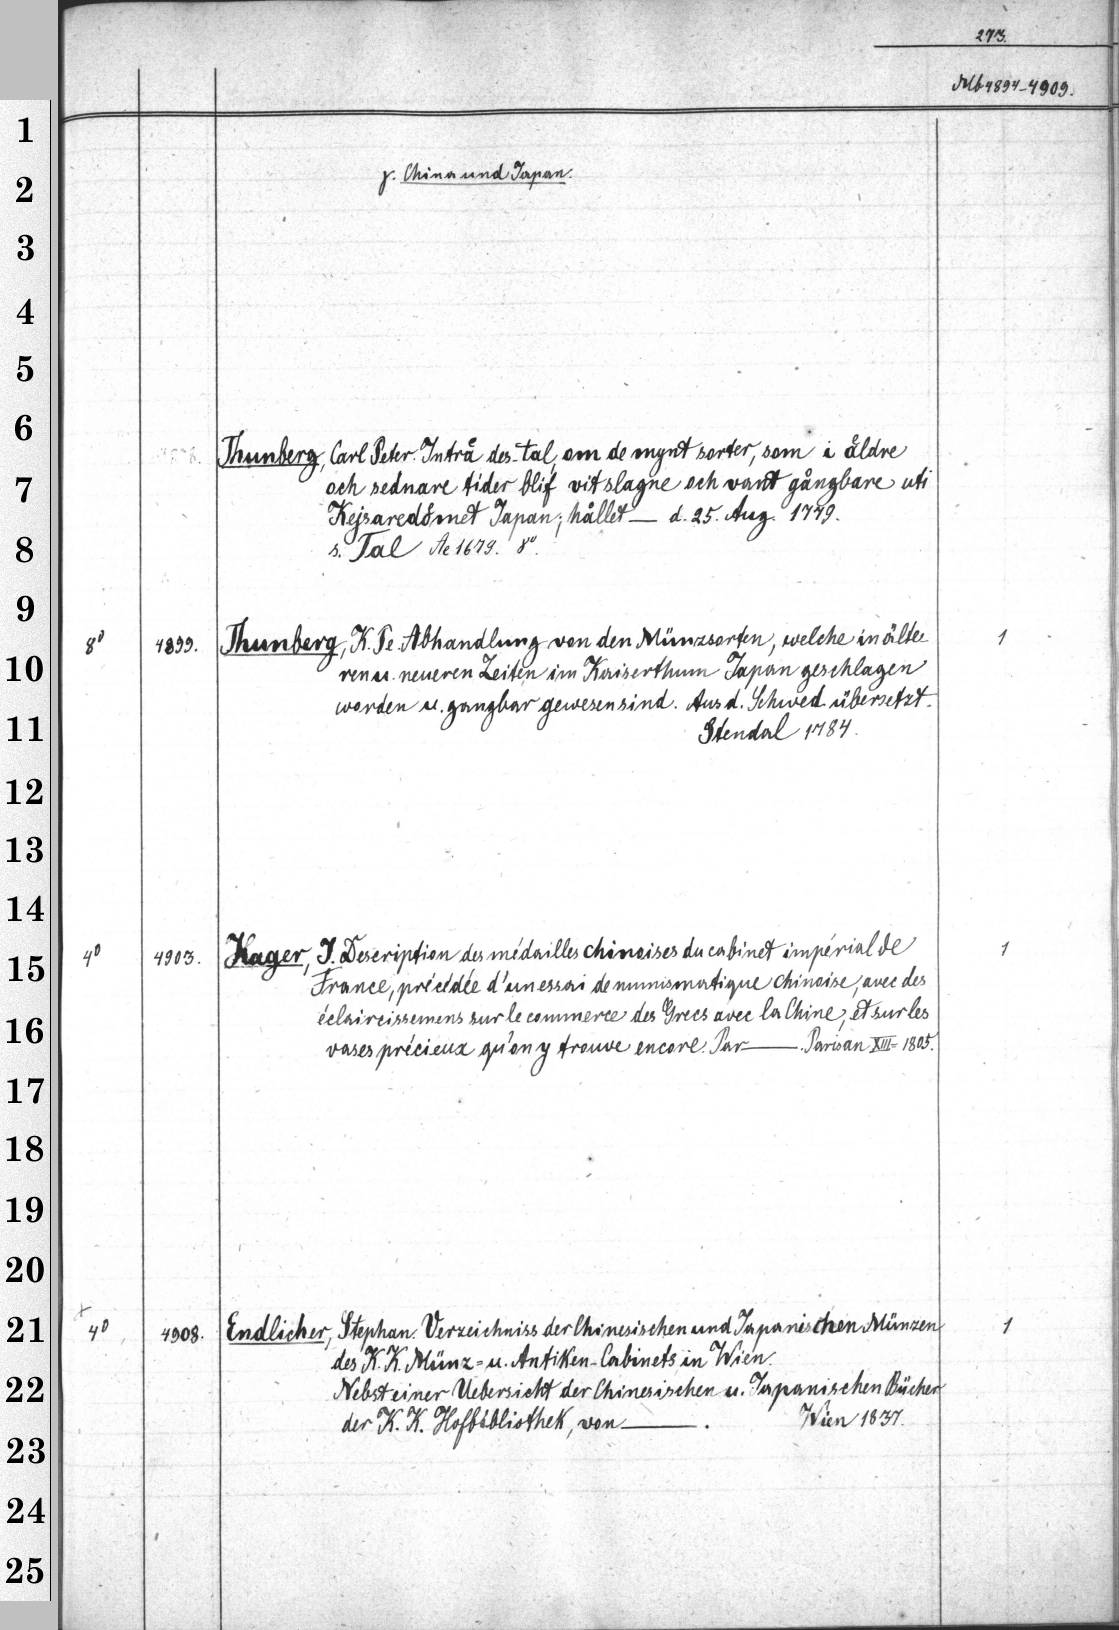 273.
Mb 4894-4909.
γ. China und Japan.
Thunberg, Carl Peter. Inträ des-tal, om de mynt sorter, som i äldre
och sednare tider blif vit slagne och vant gångbare uti
Kejsaredömet Japan; hållet — d. 25. Aug. 1779.
s. Tal Ae 1679. 8°.
8° 4899. Thunberg, K. Pe. Abhandlung von den Münzsorten, welche in älte=
ren u. neueren Zeiten im Kaiserthum Japan geschlagen
worden u. gangbar gewesen sind. Aus d. Schwed. übersetzt. 1
Stendal 1784.
4° 4903. Hager, J. Description des médailles chinoises du cabinet impérial de 1
France, précédée d'un essai de numismatique chinoise, avec des
éclaircissemens sur le commerce des Grecs avec la Chine, et sur les
vases précieux qu'on y trouve encore. Par —. Paris an XIII = 1805.
4° 4908. Endlicher, Stephan. Verzeichniss der Chinesischen und Japanischen Münzen 1
des K. K. Münz= u. Antiken-Cabinets in Wien.
Nebst einer Uebersicht der Chinesischen u. Japanischen Bücher
der K. K. Hofbibliothek, von —. Wien 1837.
1
2
3
4
5
6
7
8
9
10
11
12
13
14
15
16
17
18
19
20
21
22
23
24
25